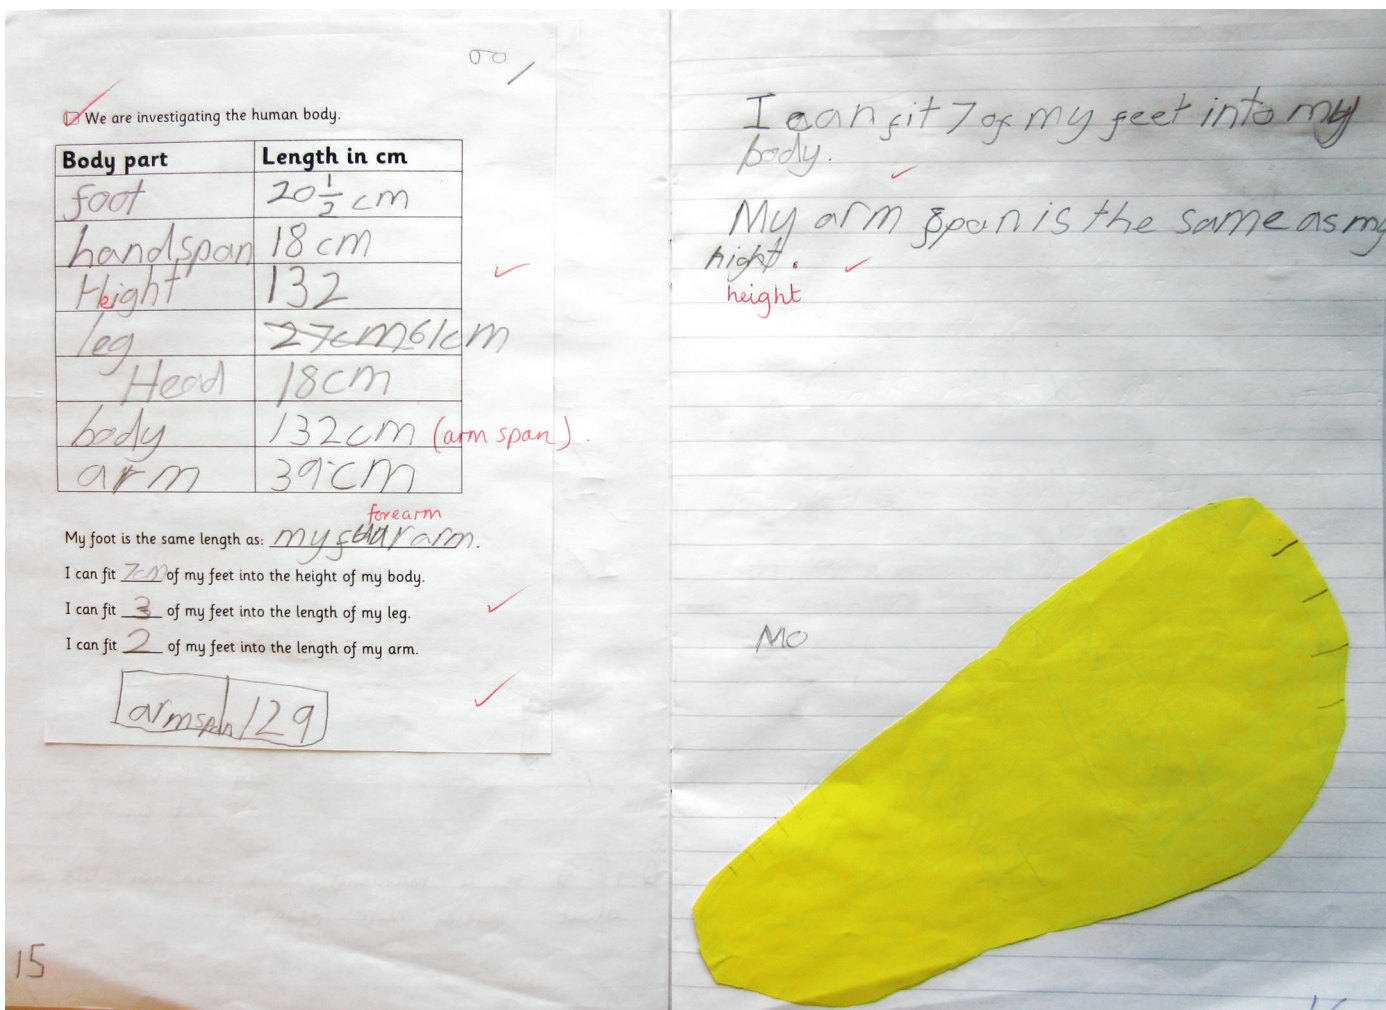 We are investigating the human body.
Body part Length in cm
foot 20 1/2 cm
handspan 18 cm
Height 132
leg 27cm 61cm
Head 18cm
body 132cm (arm span).
arm 39cm
forearm
My foot is the same length as: my arm.
I can fit 7cm of my feet into the height of my body.
I can fit 3 of my feet into the length of my leg.
I can fit 2 of my feet into the length of my arm.
armspan 129
15
I can fit 7 of my feet into my
body.
My arm span is the same as my
hight.
height
Mo